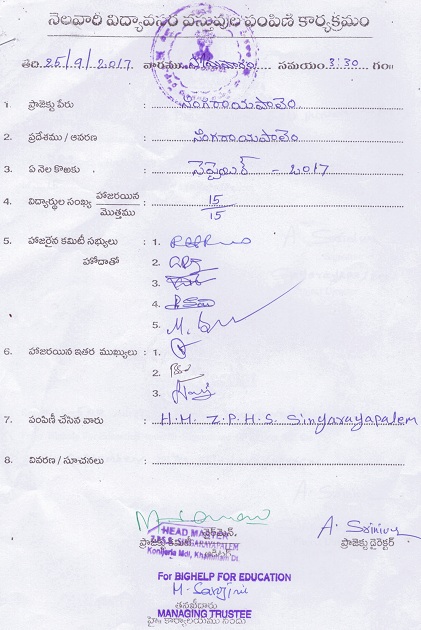 నెలవారీ విద్యావసర వస్తువుల పంపిణి కార్యక్రమం
తేది: 25/9/2017 వారము సోమవారం సమయం: 3:30 గం॥
1. ప్రాజెక్టు పేరు : సింగరాయపాలెం
2. ప్రదేశము / ఆవరణ : సింగరాయపాలెం
3. ఏ నెల కొఱకు : సెప్టెంబర్ - 2017
4. విద్యార్థుల సంఖ్య హాజరయిన / మొత్తము : 15 / 15
5. హాజరైన కమిటీ సభ్యులు : 1.
హోదాతో 2.
3.
4.
5. M.
6. హాజరయిన ఇతర ముఖ్యులు : 1.
2.
3.
7. పంపిణీ చేసిన వారు : H.M. Z.P.H.S. Singarayapalem
8. వివరణ / సూచనలు :
A. Srinivas
ప్రాజెక్టు కమిటీ ఛైర్మెన్, ప్రాజెక్టు డైరెక్టర్
HEAD MASTER
Z.P.S.S. SINGARAYAPALEM
Konijerla Mdl, Khammam Dt.
For BIGHELP FOR EDUCATION
M. Sarojini
MANAGING TRUSTEE